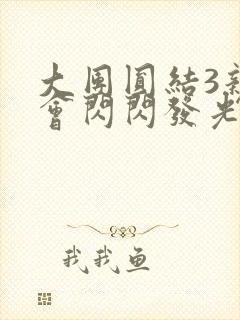 大團圓結3新
會閃閃發光
我我鱼